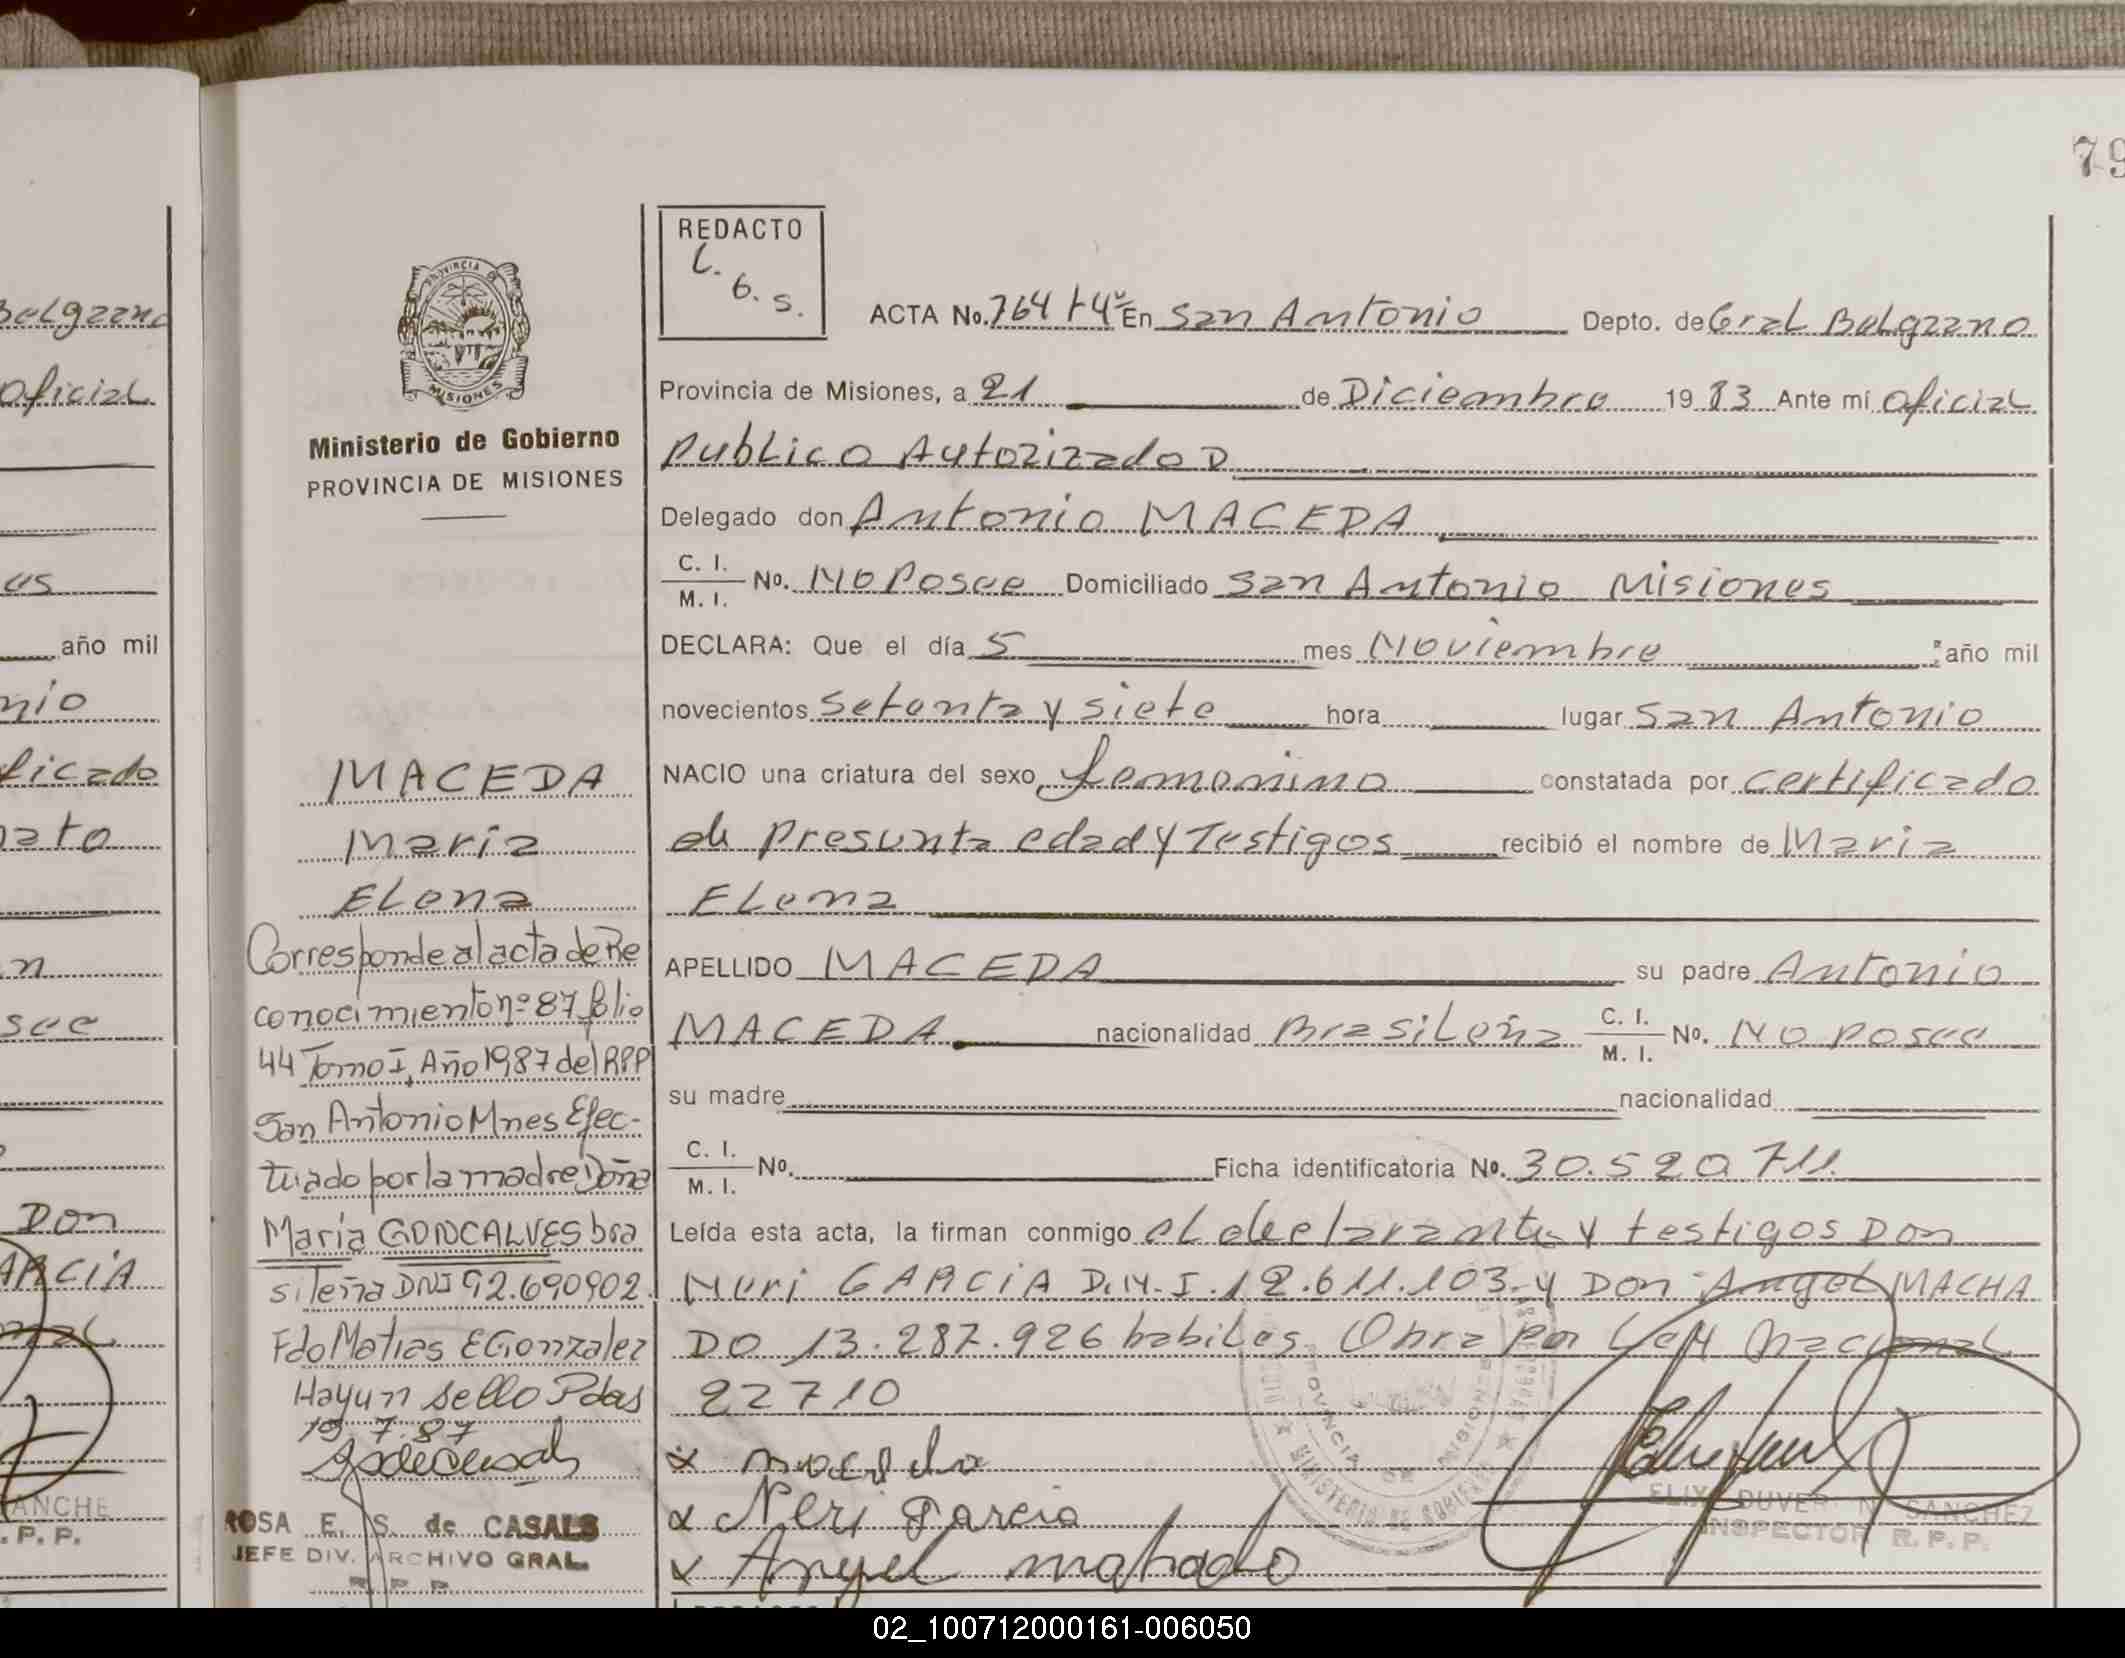 79
REDACTO
L.
G. S.
PROVINCIA DE
MISIONES
Ministerio de Gobierno
PROVINCIA DE MISIONES
ACTA No. 764 t 4º En San Antonio Depto. de Gral Belgrano
Provincia de Misiones, a 21 de Diciembre 1983 Ante mí oficial
Publico Autorizado D
Delegado don Antonio MACEDA
C. I.
M. I. No. No Posee Domiciliado San Antonio Misiones
DECLARA: Que el día 5 mes Noviembre año mil
novecientos setenta y siete hora lugar San Antonio
NACIO una criatura del sexo femenino constatada por certificado
de Presunta edad y Testigos recibió el nombre de Maria
Elena
APELLIDO MACEDA su padre Antonio
MACEDA nacionalidad Brasileña C. I.
M. I. No. No posee
su madre nacionalidad
C. I.
M. I. No. Ficha identificatoria No. 30.520.711
Leída esta acta, la firman conmigo el declarante y testigos Don
Neri GARCIA D.N.I. 12.611.103 y Don Angel MACHA
DO 13.287.926 habiles. Obra por Ley Nacional
22710
Neri Garcia
Angel
ELIX DUVER N. SANCHEZ
INSPECTOR R. P. P.
PROVINCIA DE MISIONES
MINISTERIO DE GOBIERNO
MACEDA
Maria
Elena
Corresponde al acta de Re
conocimiento nº 87 folio
44 Tomo I, Año 1987 del RPP
San Antonio Mnes Efec-
tuado por la madre Doña
María GONCALVES bra
sileña DNI 92.690902
Fdo Matias E Gonzalez
Hay un sello Pdas
19.7.87
ROSA E. S. de CASALS
JEFE DIV. ARCHIVO GRAL.
R P P
Belgrano
oficial
es
año mil
nio
ficado
nato
n
see
Don
ARCIA
nal
ANCHE
. P. P.
02_100712000161-006050